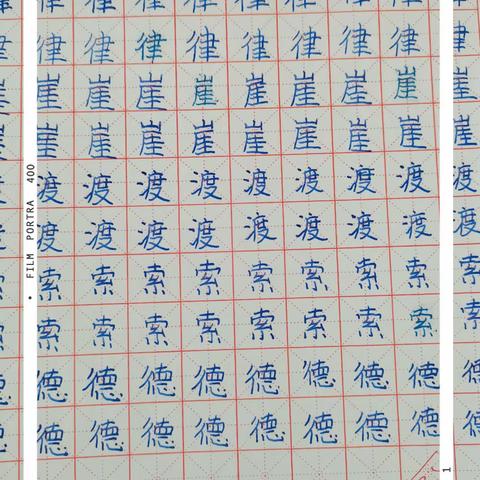 律律律律律律律律
崖崖崖崖崖崖崖崖
崖崖崖崖崖崖崖崖
渡渡渡渡渡渡渡渡
渡渡渡渡渡渡渡渡
索索索索索索索索
索索索索索索索索
德德德德德德德德
德德德德德德德德
• FILM PORTRA 400
1